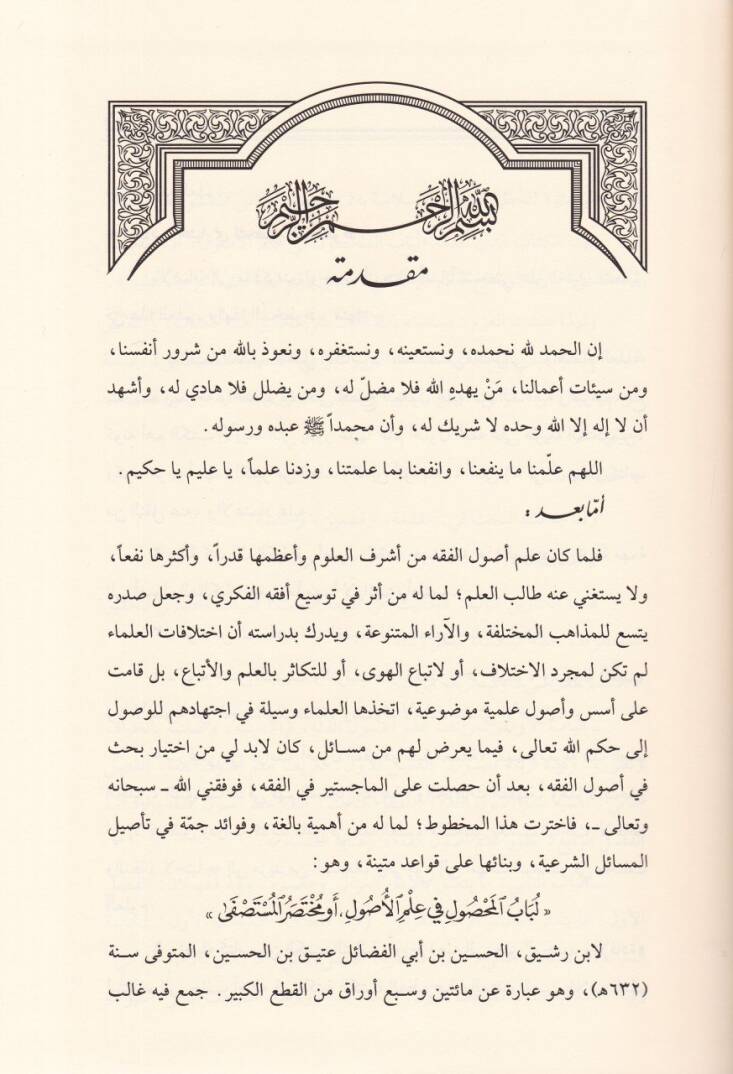 بسم الله الرحمن الرحيم
مقدمة
إن الحمد لله نحمده، ونستعينه، ونستغفره، ونعوذ بالله من شرور أنفسنا،
ومن سيئات أعمالنا، مَنْ يهدهِ الله فلا مضلّ له، ومن يضلل فلا هادي له، وأشهد
أن لا إله إلا الله وحده لا شريك له، وأن محمداً ﷺ عبده ورسوله.
اللهم علّمنا ما ينفعنا، وانفعنا بما علمتنا، وزدنا علماً، يا عليم يا حكيم.
أمّا بعد:
فلما كان علم أصول الفقه من أشرف العلوم وأعظمها قدراً، وأكثرها نفعاً،
ولا يستغني عنه طالب العلم؛ لما له من أثر في توسيع أفقه الفكري، وجعل صدره
يتسع للمذاهب المختلفة، والآراء المتنوعة، ويدرك بدراسته أن اختلافات العلماء
لم تكن لمجرد الاختلاف، أو لاتباع الهوى، أو للتكاثر بالعلم والأتباع، بل قامت
على أسس وأصول علمية موضوعية، اتخذها العلماء وسيلة في اجتهادهم للوصول
إلى حكم الله تعالى، فيما يعرض لهم من مسائل، كان لابد لي من اختيار بحث
في أصول الفقه، بعد أن حصلت على الماجستير في الفقه، فوفقني الله ـ سبحانه
وتعالى ـ، فاخترت هذا المخطوط؛ لما له من أهمية بالغة، وفوائد جمّة في تأصيل
المسائل الشرعية، وبنائها على قواعد متينة، وهو:
« لُبَابُ المَحْصُولِ في عِلْمِ الأُصُولِ، أَو مُخْتَصَرُ المُسْتَصْفَىٰ »
لابن رشيق، الحسين بن أبي الفضائل عتيق بن الحسين، المتوفى سنة
(٦٣٢هـ)، وهو عبارة عن مائتين وسبع أوراق من القطع الكبير. جمع فيه غالب